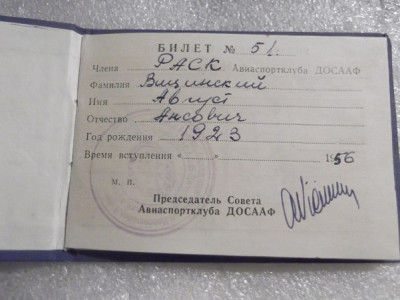 БИЛЕТ № 51.
Члена РАСК Авиаспортклуба ДОСААФ
Фамилия Вицинский
Имя Август
Отчество Ансович
Год рождения 1923
Время вступления «      » 1956
М. П.
Председатель Совета
Авиаспортклуба ДОСААФ